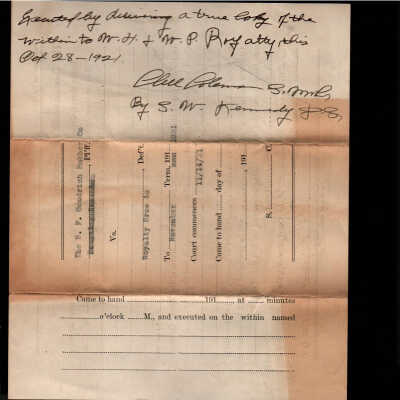 Executed by delivering a true Copy of the
within to W. H. & W. P. Roy atty, this
Oct 28-1921
By S. W. Kennedy D.S.
The B. F. Goodrich Rubber Co
PltF.
Vs.
Royalty Bros Co Def't.
To November Term, 191
Court commences 11/14/21
Came to hand day of , 191
S. C.
Came to hand 191 at minutes
o'clock M., and executed on the within named